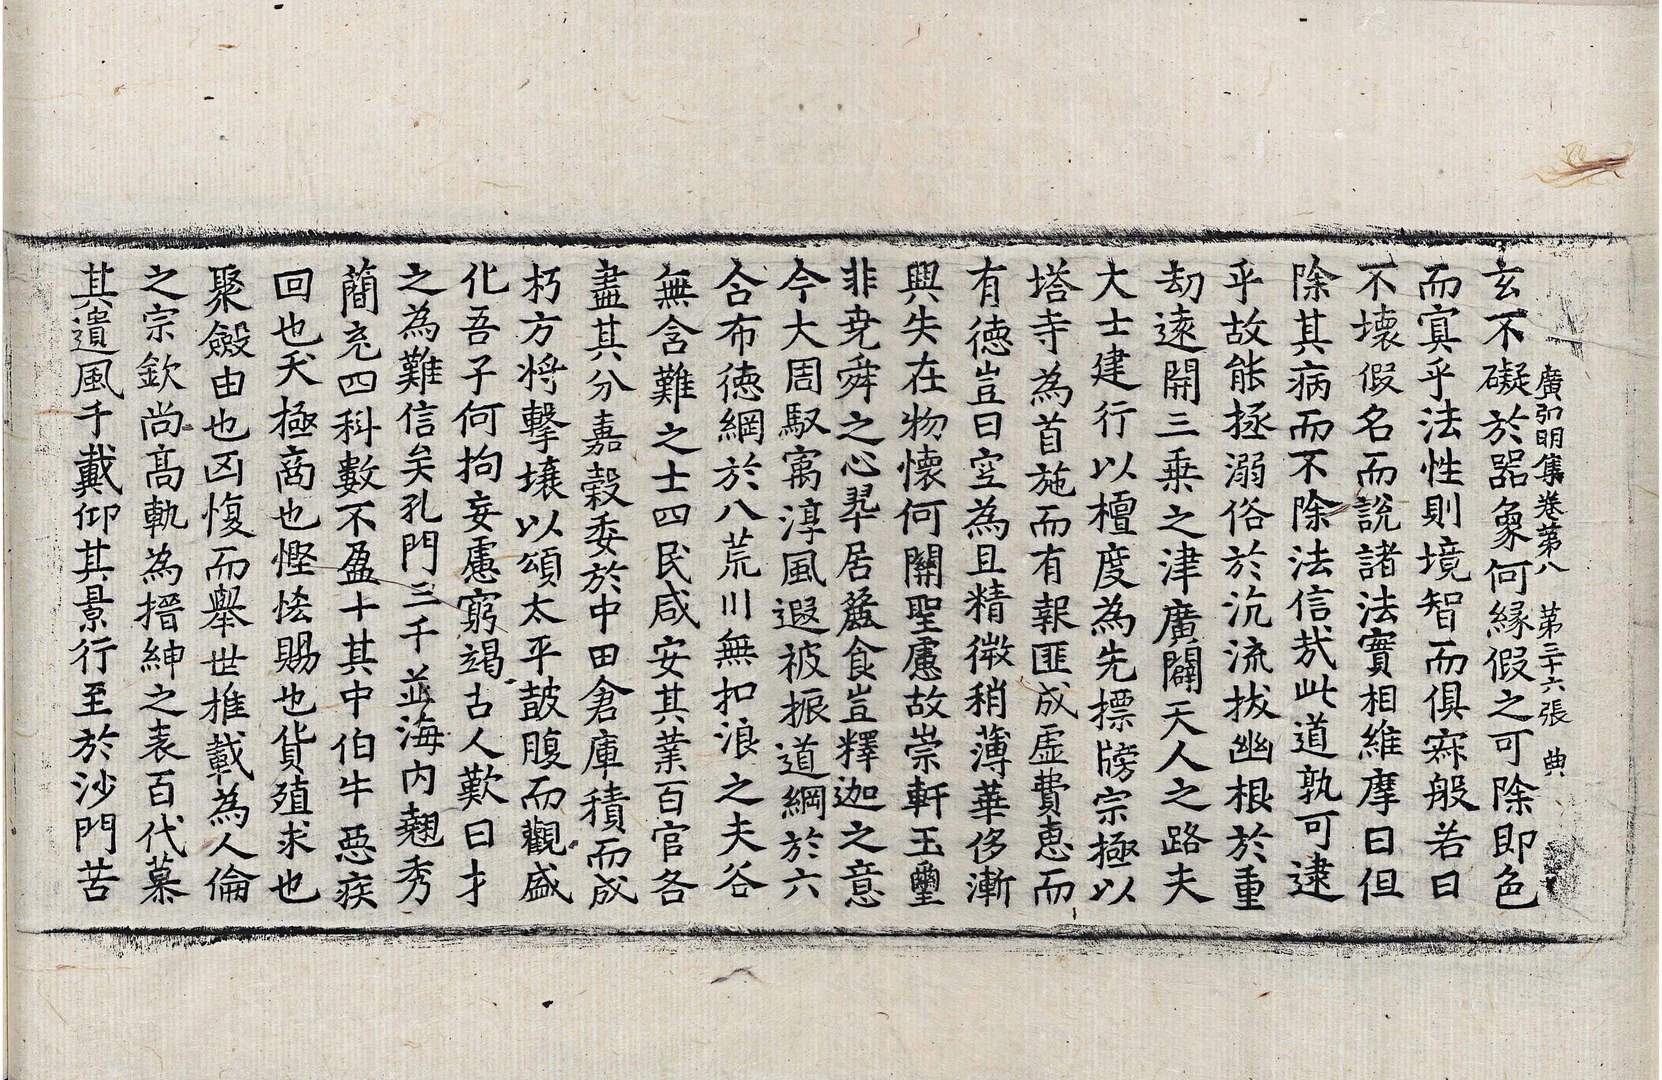 廣弘明集卷第八　第三十六張　典
玄不礙於器象何緣假之可除即色
而寘乎法性則境智而俱寂般若曰
不壞假名而說諸法實相維摩曰但
除其病而不除法信哉此道孰可逮
乎故能拯溺俗於沉流拔幽根於重
劫遠開三乗之津廣闢天人之路夫
大士建行以檀度為先標牓宗極以
塔寺為首施而有報匪成虛費惠而
有德豈曰空為且精微稍薄華侈漸
興失在物懷何關聖慮故崇軒玉璽
非堯舜之心翠居麁食豈釋迦之意
今大周馭㝢淳風遐被振道綱於六
合布徳網於八荒川無扣浪之夫谷
無含難之士四民咸安其業百官各
盡其分嘉穀委於中田倉庫積而成
朽方將擊壤以頌太平鼓腹而觀盛
化吾子何拘妄慮窮竭古人歎曰才
之為難信矣孔門三千並海內翹秀
蕳充四科數不盈十其中伯牛惡疾
回也夭極商也慳悋賜也貨殖求也
聚斂由也凶愎而舉世推載為人倫
之宗欽尚髙軌為搢紳之表百代慕
其遺風千載仰其景行至於沙門苦